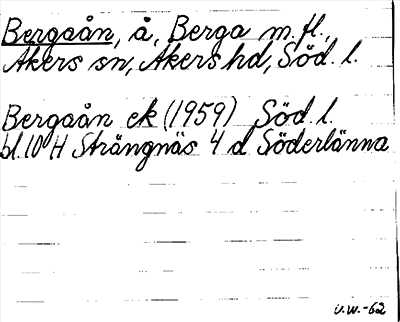 Bergaån, å, Berga m.fl.,
Åkers sn, Åkers hd, Söd. l.
Bergaån ek (1959) Söd. l.
bl. 10 H Strängnäs 4 d Söderlänna
U.W.-62